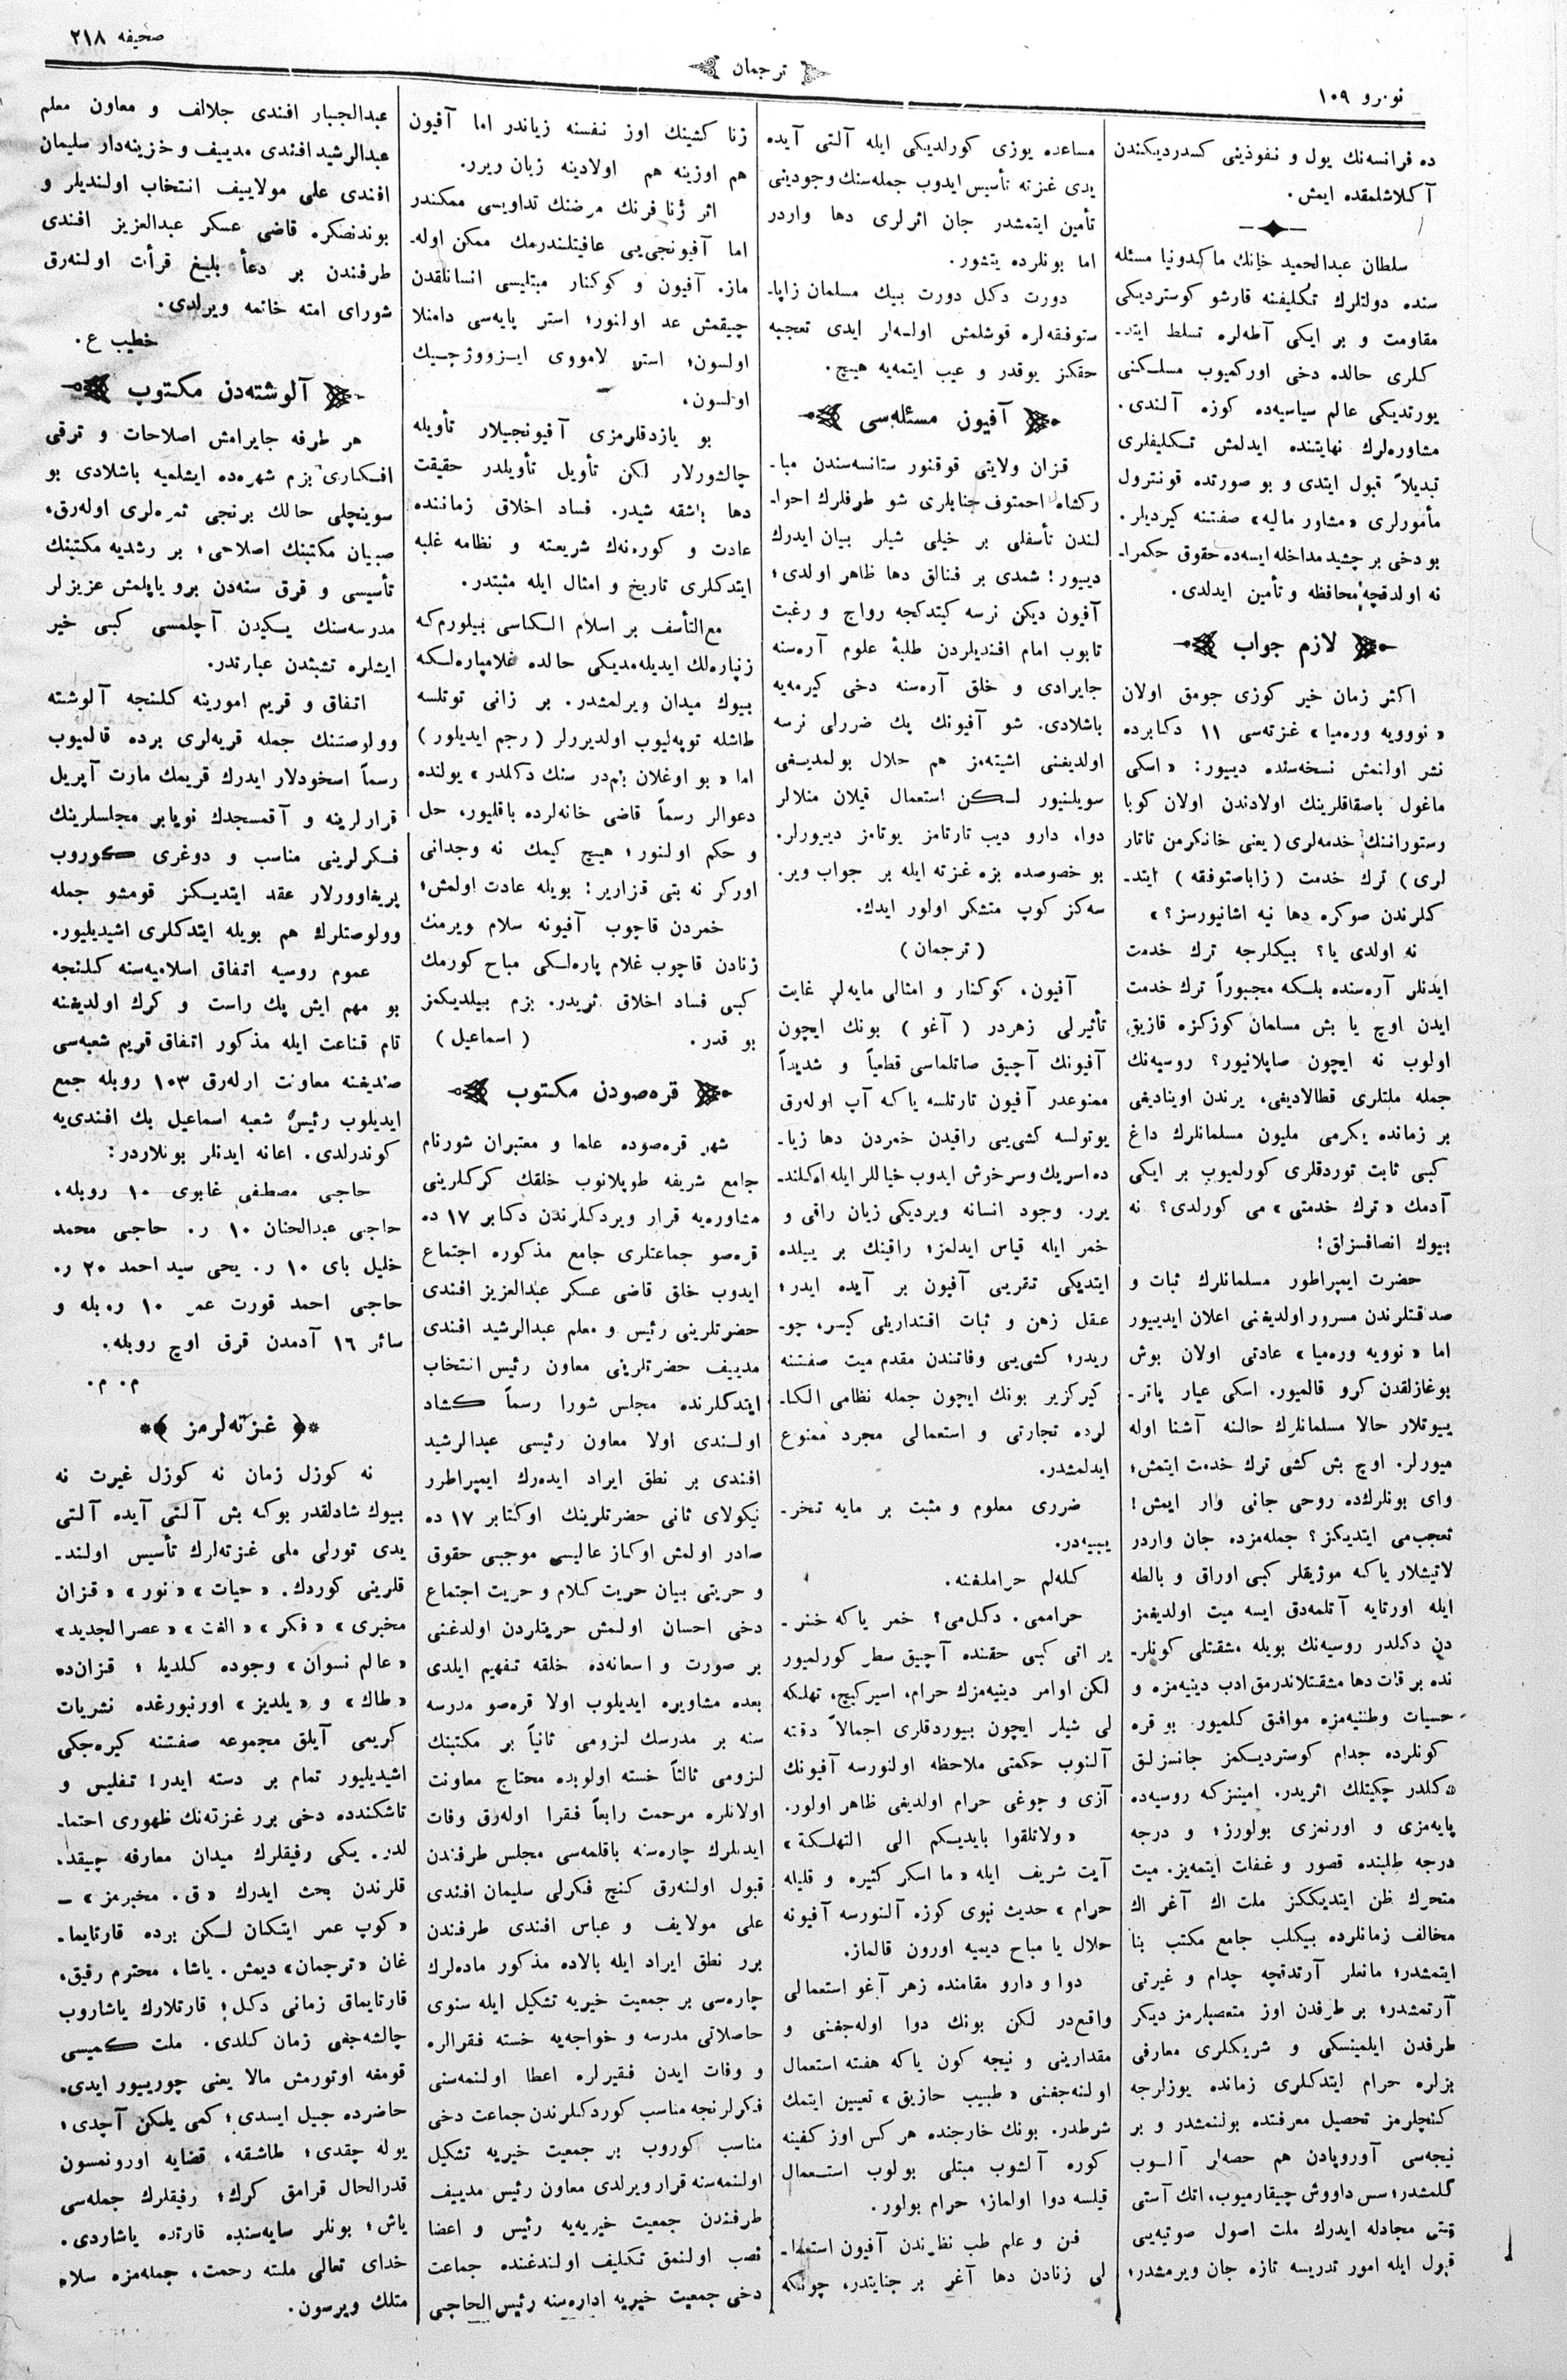 صحیفه ۲۱۸
ترجمان
نومرو ۱۰۹
ده فرانسه‌نك یول و نفوذینی کسدردیکندن
آکلاشلمقده ایمش.
سلطان عبدالحمید خانك ماکدونیا مسئله
سنده دولتلرك تکلیفنه قارشو کوستردیکی
مقاومت و بر ایکی آطه‌لره تسلط ایتد-
کلری حالده دخی اورکمیوب مسلکنی
یورتدیکی عالم سیاسیه‌ده کوزه آلندی.
مشاوره‌لرك نهایتنده ایدلمش تکلیفلری
تبدیلاً قبول ایتدی و بو صورتده قونترول
مأمورلری «مشاور مالیه» صفتنه کیردیلر.
بو دخی بر چشید مداخله ایسه‌ده حقوق حکمرا-
نه اولدقچه محافظه و تأمین ایدلدی.
لازم جواب
اکثر زمان خیر کوزی جومق اولان
«نوویه وره‌میا» غزته‌سی ۱۱ دکابرده
نشر اولنمش نسخه‌سنده دییور: «اسکی
ماغول باصقاقلرینك اولادندن اولان کوبا
رستوراننك خدمه‌لری (یعنی خانکرمن تاتار
لری) ترك خدمت (زاباصتوفقه) ایتد-
کلرندن صوکره دها نیه اشانیورسز؟»
نه اولدی یا؟ بیکلرجه ترك خدمت
ایدنلر آره‌سنده بلکه مجبوراً ترك خدمت
ایدن اوچ یا بش مسلمان کوزکزه قازیق
اولوب نه ایچون صاپلانیور؟ روسیه‌نك
جمله ملتلری قطالادیغی، یرندن اوینادیغی
بر زمانده یکرمی ملیون مسلمانلرك داغ
کبی ثابت توردقلری کورلمیوب بر ایکی
آدمك «ترك خدمتی» می کورلدی؟ نه
بیوك انصافسزلق!
حضرت ایمپراطور مسلمانلرك ثبات و
صداقتلرندن مسرور اولدیغنی اعلان ایدییور
اما «نوویه وره‌میا» عادتی اولان بوش
بوغازلقدن کرو قالمیور. اسکی عیار پاتر-
ییوتلار حالا مسلمانلرك حالنه آشنا اوله
میورلر. اوچ بش کشی ترك خدمت ایتمش؛
وای بونلرك‌ده روحی جانی وار ایمش!
تعجب‌می ایتدیکز؟ جمله‌مزده جان واردر
لاتیشلار یاکه موژیقلر کبی اوراق و بالطه
ایله اورتایه آتلمه‌دق ایسه میت اولدیغمز
دن دکلدر روسیه‌نك بویله مشقتلی کونلر-
نده بر قات دها مشقتلاندرمق ادب دینیه‌مزه و
حسیات وطنیه‌مزه موافق کلمیور. بو قره
کونلرده جدام کوستردیکمز جانسزلق
دکلدر چکیتلك اثریدر. امیننزکه روسیه‌ده
پایه‌مزی و اورنمزی بولورز؛ و درجه
درجه طلبنده قصور و غفلت ایتمه‌یز. میت
متحرك ظن ایتدیککز ملت اك آغر اك
مخالف زمانلرده بیکلب جامع مکتب بنا
ایتمشدر؛ مانعلر آرتدقچه چدام و غیرتی
آرتمشدر؛ بر طرفدن اوز متعصبلرمز دیکر
طرفدن ایلمینسکی و شریکلری معارفی
بزلره حرام ایتدکلری زمانده یوزلرجه
کنچلرمز تحصیل معرفتده بولنمشدر و بر
نیجه‌سی آوروپادن هم حصه‌لر آلوب
کلمشدر؛ سس داووش چیقارمیوب، اتك آستی
قتی مجادله ایدرك ملت اصول صوتیه‌یی
قبول ایله امور تدریسه تازه جان ویرمشدر؛
مساعده یوزی کورلدیکی ایله آلتی آیده
یدی غزته تأسیس ایدوب جمله‌سنك وجودینی
تأمین ایتمشدر جان اثرلری دها واردر
اما بونلرده یتشور.
دورت دکل دورت بیك مسلمان زاپا-
ستوفقه‌لره قوشلمش اولسه‌لر ایدی تعجبه
حقکز یوقدر و عیب ایتمه‌یه هیچ.
آفیون مسئله‌سی
قزان ولایتی قوقنور ستانسه‌سندن مبا-
رکشاه احمتوف جنابلری شو طرفلرك احوا-
لندن تأسفلی بر خیلی شیلر بیان ایدرك
دییور: شمدی بر فنالق دها ظاهر اولدی؛
آفیون دیکن نرسه کیتدکجه رواج و رغبت
تابوب امام افندیلردن طلبهٔ علوم آره‌سنه
جایرادی و خلق آره‌سنه دخی کیرمه‌یه
باشلادی. شو آفیونك پك ضررلی نرسه
اولدیغنی اشیته‌مز هم حلال بولمدیغی
سویلنیور لکن استعمال قیلان منلالر
دوا، دارو دیب تارتامز یوتامز دییورلر.
بو خصوصده بزه غزته ایله بر جواب ویر.
سه‌کز کوپ متشکر اولور ایدك.
(ترجمان)
آفیون، کوکنار و امثالی مایه‌لر غایت
تأثیرلی زهردر (آغو) بونك ایچون
آفیونك آچیق صاتلماسی قطعیاً و شدیداً
ممنوعدر آفیون تارتلسه یاکه آپ اوله‌رق
یوتولسه کشی‌یی راقیدن خمردن دها زیا-
ده اسریك و سرخوش ایدوب خیاللر ایله اکلند-
یرر. وجود انسانه ویردیکی زیان راقی و
خمر ایله قیاس ایدلمز؛ راقینك بر ییلده
ایتدیکی تخریبی آفیون بر آیده ایدر؛
عقل زهن و ثبات اقتداریلی کیسر، چو-
ریدر؛ کشی‌یی وفاتندن مقدم میت صفتنه
کیرکزیر بونك ایچون جمله نظامی الکا-
لرده تجارتی و استعمالی مجرد ممنوع
ایدلمشدر.
ضرری معلوم و مثبت بر مایه تخر-
یبیه‌در.
کله‌لم حراملغنه.
حراممی، دکل‌می؟ خمر یاکه خنز-
یر اتی کبی حقنده آچیق سطر کورلمیور
لکن اوامر دینیه‌مزك حرام، اسیرکیج، تهلکه
لی شیلر ایچون بیوردقلری اجمالاً دقته
آلنوب حکمتی ملاحظه اولنورسه آفیونك
آزی و چوغی حرام اولدیغی ظاهر اولور.
«ولاتلقوا بایدیکم الی التهلکة»
آیت شریف ایله «ما اسکر کثیره و قلیله
حرام» حدیث نبوی کوزه آلنورسه آفیونه
حلال یا مباح دیمیه اورون قالماز.
دوا و دارو مقامنده زهر آغو استعمالی
واقع‌در لکن بونك دوا اوله‌جغنی و
مقدارینی و نیچه کون یاکه هفته استعمال
اولنه‌جغنی «طبیب حازیق» تعیین ایتمك
شرطدر. بونك خارجنده هر کس اوز کفینه
کوره آلشوب مبتلی بولوب استعمال
قیلسه دوا اولماز؛ حرام بولور.
فن و علم طب نظرندن آفیون استعما-
لی زنادن دها آغر بر جنایتدر، چونکه
زنا کشینك اوز نفسنه زیاندر اما آفیون
هم اوزینه هم اولادینه زیان ویرر.
اثر ژنا فرنك مرضنك تداویسی ممکندر
اما آفیونجی‌یی عافیتلندرمك ممکن اوله-
ماز. آفیون و کوکنار مبتلیسی انسانلقدن
چیقمش عد اولنور؛ استر پایه‌سی دامنلا
اولسون؛ استر لامووی ایزووژچیك
اولسون.
بو یازدقلرمزی آفیونجیلار تأویله
چالشورلار لکن تأویل تأویلدر حقیقت
دها باشقه شیدر. فساد اخلاق زماننده
عادت و کوره‌نك شریعته و نظامه غلبه
ایتدکلری تاریخ و امثال ایله مثبتدر.
مع‌التأسف بر اسلام الکاسی بیلورم‌که
زنپاره‌لك ایدیله‌مدیکی حالده غلامپاره‌لکه
بیوك میدان ویرلمشدر. بر زانی توتلسه
طاشله توپه‌لیوب اولدیررلر (رجم ایدیلور)
اما «بو اوغلان بنم‌در سنك دکلدر» یولنده
دعوالر رسماً قاضی خانه‌لرده باقلیور، حل
و حکم اولنور؛ هیچ کیمك نه وجدانی
اورکر نه بتی قزاریر! بویله عادت اولمش؛
خمردن قاچوب آفیونه سلام ویرمك
زنادن قاچوب غلام پاره‌لکی مباح کورمك
کبی فساد اخلاق ثریدر. بزم بیلدیکمز
بو قدر. (اسماعیل)
قره‌صودن مکتوب
شهر قره‌صوده علما و معتبران شورنام
جامع شریفه طوپلانوب خلقك کرکلرینی
مشاوره‌یه قرار ویردکلرندن دکابر ۱۷ ده
قره‌صو جماعتلری جامع مذکوره اجتماع
ایدوب خلق قاضی عسکر عبدالعزیز افندی
حضرتلرینی رئیس و معلم عبدالرشید افندی
مدییف حضرتلرینی معاون رئیس انتخاب
ایتدکلرنده مجلس شورا رسماً کشاد
اولندی اولا معاون رئیسی عبدالرشید
افندی بر نطق ایراد ایده‌رك ایمپراطرر
نیکولای ثانی حضرتلرینك اوکتابر ۱۷ ده
صادر اولمش اوکاز عالیسی موجبی حقوق
و حریتی بیان حریت کلام و حریت اجتماع
دخی احسان اولنمش حریتلردن اولدغنی
بر صورت و اسعانه‌ده خلقه تفهیم ایلدی
بعده مشاویره ایدیلوب اولا قره‌صو مدرسه
سنه بر مدرسك لزومی ثانیاً بر مکتبنك
لزومی ثالثاً خسته اولوبده محتاج معاونت
اولانلره مرحمت رابعاً فقرا اوله‌رق وفات
ایدنلرك چاره‌سنه باقلمه‌سی مجلس طرفندن
قبول اولنه‌رق کنچ فکرلی سلیمان افندی
علی مولایف و عباس افندی طرفندن
برر نطق ایراد ایله بالاده مذکور ماده‌لرك
چاره‌سی بر جمعیت خیریه تشکیل ایله سنوی
حاصلاتی مدرسه و خواجه‌یه خسته فقرالره
و وفات ایدن فقیرلره اعطا اولنمه‌سنی
فکرلرنجه مناسب کوردکلرندن جماعت دخی
مناسب کوروب بر جمعیت خیریه تشکیل
اولنمه‌سنه قرار ویرلدی معاون رئیس مدییف
طرفندن جمعیت خیریه‌یه رئیس و اعضا
نصب اولنمق تکلیف اولندغنده جماعت
دخی جمعیت خیریه اداره‌سنه رئیس الحاجی
عبدالجبار افندی جلالف و معاون معلم
عبدالرشید افندی مدییف و خزینه‌دار سلیمان
افندی علی مولاییف انتخاب اولندیلر و
بوندنصکره قاضی عسکر عبدالعزیز افندی
طرفندن بر دعأ بلیغ قرأت اولنه‌رق
شورای امته خاتمه ویرلدی.
خطیب ع.
آلوشته‌دن مکتوب
هر طرفه جایرامش اصلاحات و ترقی
افکاری بزم شهرده ایشلمیه باشلادی بو
سوینچلی حالك برنجی ثمره‌لری اوله‌رق،
صبیان مکتبنك اصلاحی؛ بر رشدیه مکتبنك
تأسیسی و قرق سنه‌دن برو یاپلمش عزیزلر
مدرسه‌سنك یکیدن آچلمسی کبی خیر
ایشلره تشبثدن عبارتدر.
اتفاق و قریم امورینه کلنجه آلوشته
وولوصتنك جمله قریه‌لری برده قالمیوب
رسماً اسخودلار ایدرك قریمك مارت آپریل
قرارلرینه و آقمسجدك نویابر مجلسلرینك
فکرلرینی مناسب و دوغری کوروب
پریغاوورلار عقد ایتدیکز قومشو جمله
وولوصتلرك هم بویله ایتدکلری اشیدیلیور.
عموم روسیه اتفاق اسلامیه‌سنه کلنجه
بو مهم ایش پك راست و کرك اولدیغنه
تام قناعت ایله مذکور اتفاق قریم شعبه‌سی
صندیغنه معاونت ارله‌رق ۱۰۳ روبله جمع
ایدیلوب رئیس شعبه اسماعیل بك افندی‌یه
کوندرلدی. اعانه ایدنلر بونلاردر:
حاجی مصطفی غابوی ۱۰ روبله،
حاجی عبدالحنان ۱۰ ر. حاجی محمد
خلیل بای ۱۰ ر. یحی سید احمد ۲۰ ر.
حاجی احمد قورت عمر ۱۰ روبله و
سائر ۱۶ آدمدن قرق اوچ روبله.
م. م.
غزته‌لرمز
نه کوزل زمان نه کوزل غیرت نه
بیوك شادلقدر بوکه بش آلتی آیده آلتی
یدی تورلی ملی غزته‌لرك تأسیس اولند-
قلرینی کوردك. «حیات» «نور» «قزان
مخبری» «فکر» «الفت» «عصر الجدید»
«عالم نسوان» وجوده کلدیلر؛ قزان‌ده
«طاك» و «یلدیز» اورنبورغده نشریات
کریمی آیلق مجموعه صفتنه کیره‌جکی
اشیدیلیور تمام بر دسته ایدر! تفلیس و
تاشکندده دخی برر غزته‌نك ظهوری احتما-
لدر. یکی رفیقلرك میدان معارفه چیقد-
قلرندن بحث ایدرك «ق. مخبرمز» —
«کوپ عمر ایتکان لکن برده قارتایما-
غان «ترجمان» دیمش. یاشا، محترم رفیق،
قارتایماق زمانی دکل؛ قارتلارك یاشاروب
چالشه‌جغی زمان کلدی. ملت کمیسی
قومغه اوتورمش مالا یعنی چورییور ایدی.
حاضرده جیل ایسدی؛ کمی یلکن آچدی؛
یوله چقدی؛ طاشقه، قضایه اورونمسون
قدرالحال قرامق کرك؛ رفیقلرك جمله‌سی
یاش؛ بونلر سایه‌سنده قارتده یاشاردی.
خدای تعالی ملته رحمت، جمله‌مزه سلا-
متلك ویرسون.